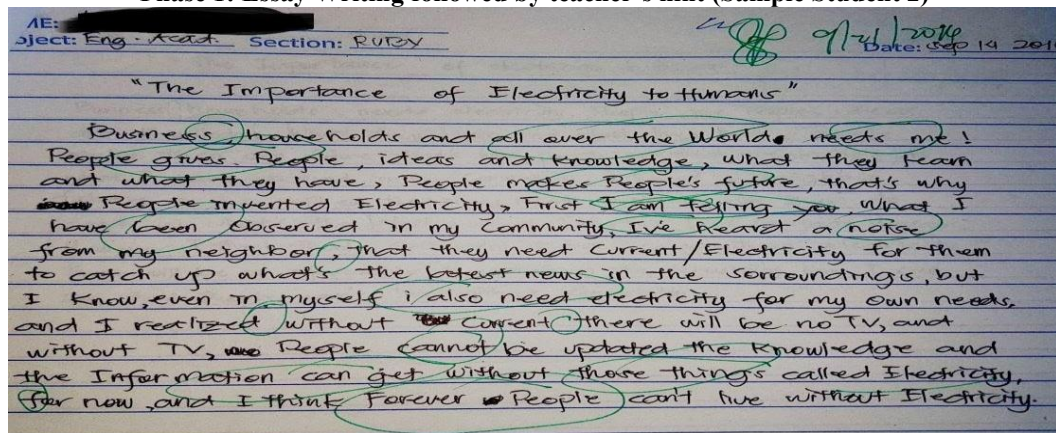 Phase 1: Essay Writing followed by teacher's hint (Sample Student 2)
AE:
oject: Eng. Acad. Section: RUBY
9/21/2014
Date: Sep 14 201
"The Importance of Electricity to Humans"
Business, households and all over the World. needs me!
People gives People, ideas and knowledge, what they learn
and what they have, People makes People's future, that's why
People invented Electricity, First I am telling you what I
have been Observed in my Community, I've heard a noise
from my neighbor, that they need Current/Electricity for them
to catch up what's the latest news in the sorroundings, but
I know, even in myself i also need electricity for my own needs,
and I realized without Current there will be no TV, and
without TV, People cannot be updated the knowledge and
the Information can get without those things called Electricity,
for now, and I think Forever People can't live without Electricity.